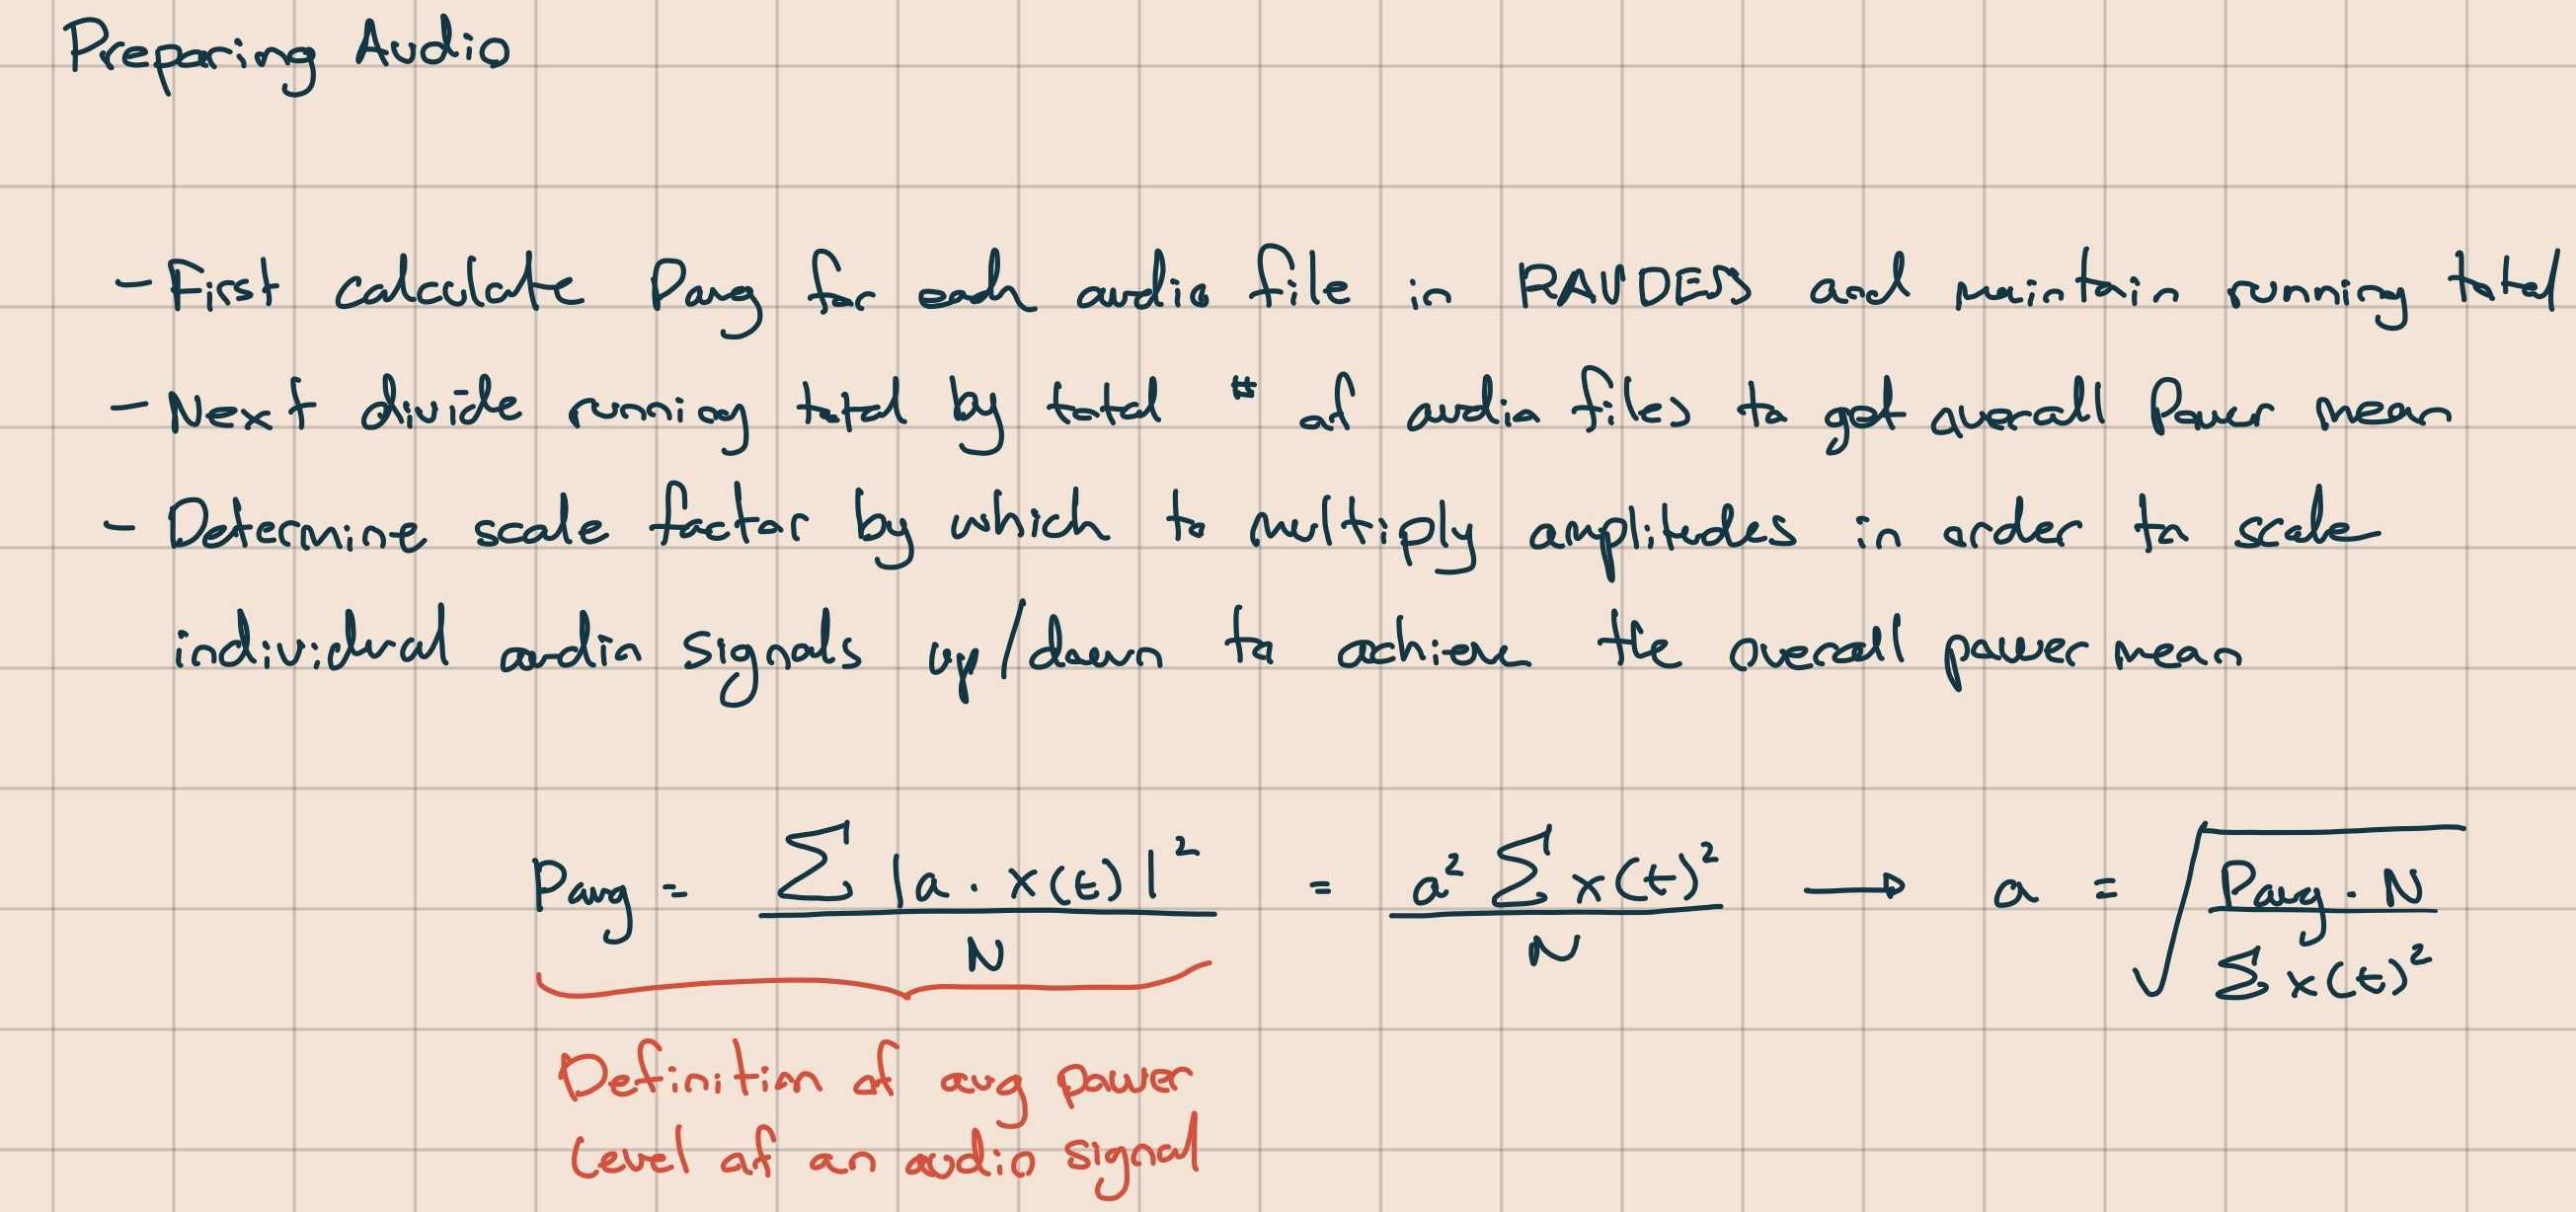 Preparing Audio
- First calculate Pavg for each audio file in RAVDESS and maintain running total
- Next divide running total by total # of audio files to get overall Power mean
- Determine scale factor by which to multiply amplitudes in order to scale
individual audio signals up/down to achieve the overall power mean
Pavg = ∑ |a · x(t)|² / N = a² ∑ x(t)² / N → a = √(Pavg · N / ∑ x(t)²)
Definition of avg power
level of an audio signal